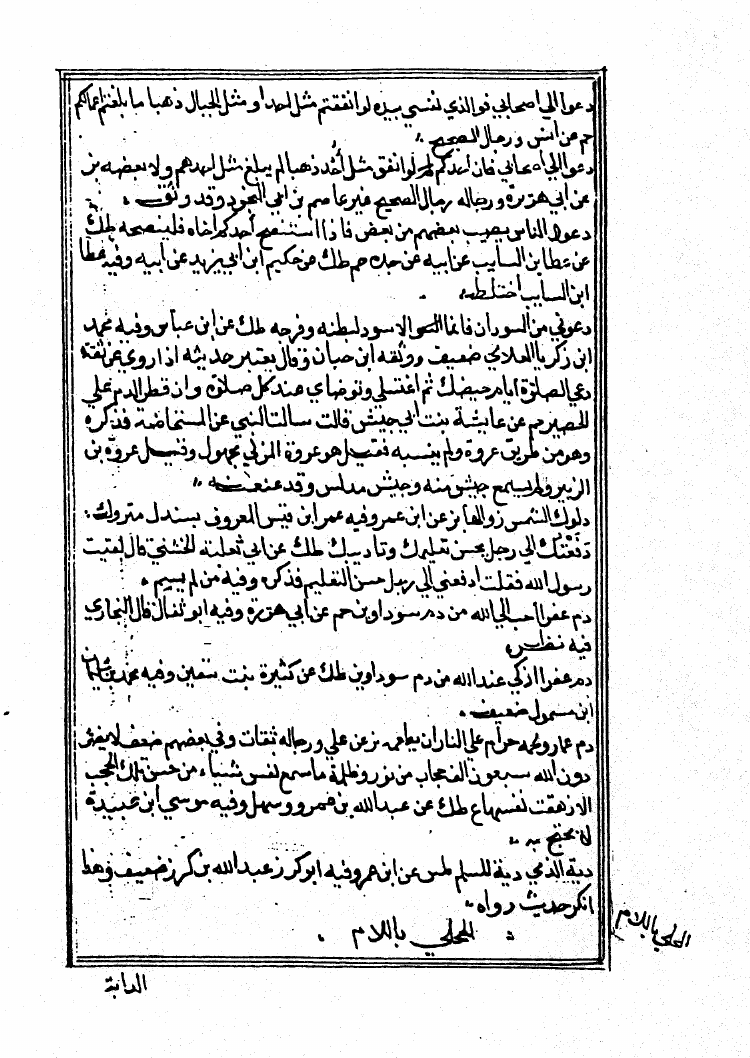 دعوا لي اصحابي فوالذي نفسي بيده لو انفقتم مثل احد او مثل الجبال ذهبا ما بلغتم اعمالكم
حم عن انس ورجال الصحيح
دعوا لي اصحابي فان احدكم لو انفق مثل أحد ذهبا لم يبلغ مثل احدهم ولا بعضه بز
عن ابي هريرة ورجاله رجال الصحيح غير عاصم بن ابي النجود وقد وثق
دعوا الناس يصيب بعضهم من بعض فاذا استنصح أحدكم اخاه فلينصحه طك
عن عطا بن السايب عن ابيه عن جده حم طك عن حكيم ابن ابي يزيد عن ابيه وفيه عطا
ابن السايب اختلط
دعوني من السودان فانما الاسود لبطنه وفرجه طك عن ابن عباس وفيه محمد
ابن زكريا العلاي ضعيف ووثقه ابن حبان وقال يعتبر حديثه اذا روي عن ثقة
دعي الصلاة ايام حيضك ثم اغتسلي وتوضاي عند كل صلاة وان قطر الدم علي
الحصير حم عن عايشة بنت ابي حبيش قالت سالت النبي عن المستحاضة فذكره
وهو من طريق عروة ولم ينسبه فقيل هو عروة المزني مجهول وقيل عروة بن
الزبير ولم يسمع حبيش منه وحبيش مدلس وقد عنعنه
دلوك الشمس زوالها بز عن ابن عمر وفيه عمر ابن قيس المعروف بسندل متروك
دفعتك الي رجل يحسن تعليمك وتاديبك طك عن ابي ثعلبة الخشني قال لقيت
رسول الله فقلت ادفعني الي رجل حسن التعليم فذكره وفيه من لم يسم
دم عفرا احب الي الله من دم سوداوين حم عن ابي هريرة وفيه ابو ثفال قال البخاري
فيه نظر
دم عفرا ازكي عند الله من دم سوداوين طك عن كثيرة بنت سفين وفيه محمد بن سليمان
ابن مسمول ضعيف
دم عمار ولحمه حرام علي النار ان يطعمه بز عن علي ورجاله ثقات وفي بعضهم ضعف لا يضر
دون الله سبعون الف حجاب من نور وظلمة ما سمع نفس شياء من حسن تلك الحجب
الا زهقت نفسها ع طك عن عبد الله بن عمرو وسهل وفيه موسي ابن عبيدة
لا يحتج به
دية الذمي دية المسلم طس عن ابن عمر وفيه ابو كرز عبد الله بن كرز ضعيف وهذا
انكر حديث رواه
المحلي باللام
المحلي باللام
الدابة